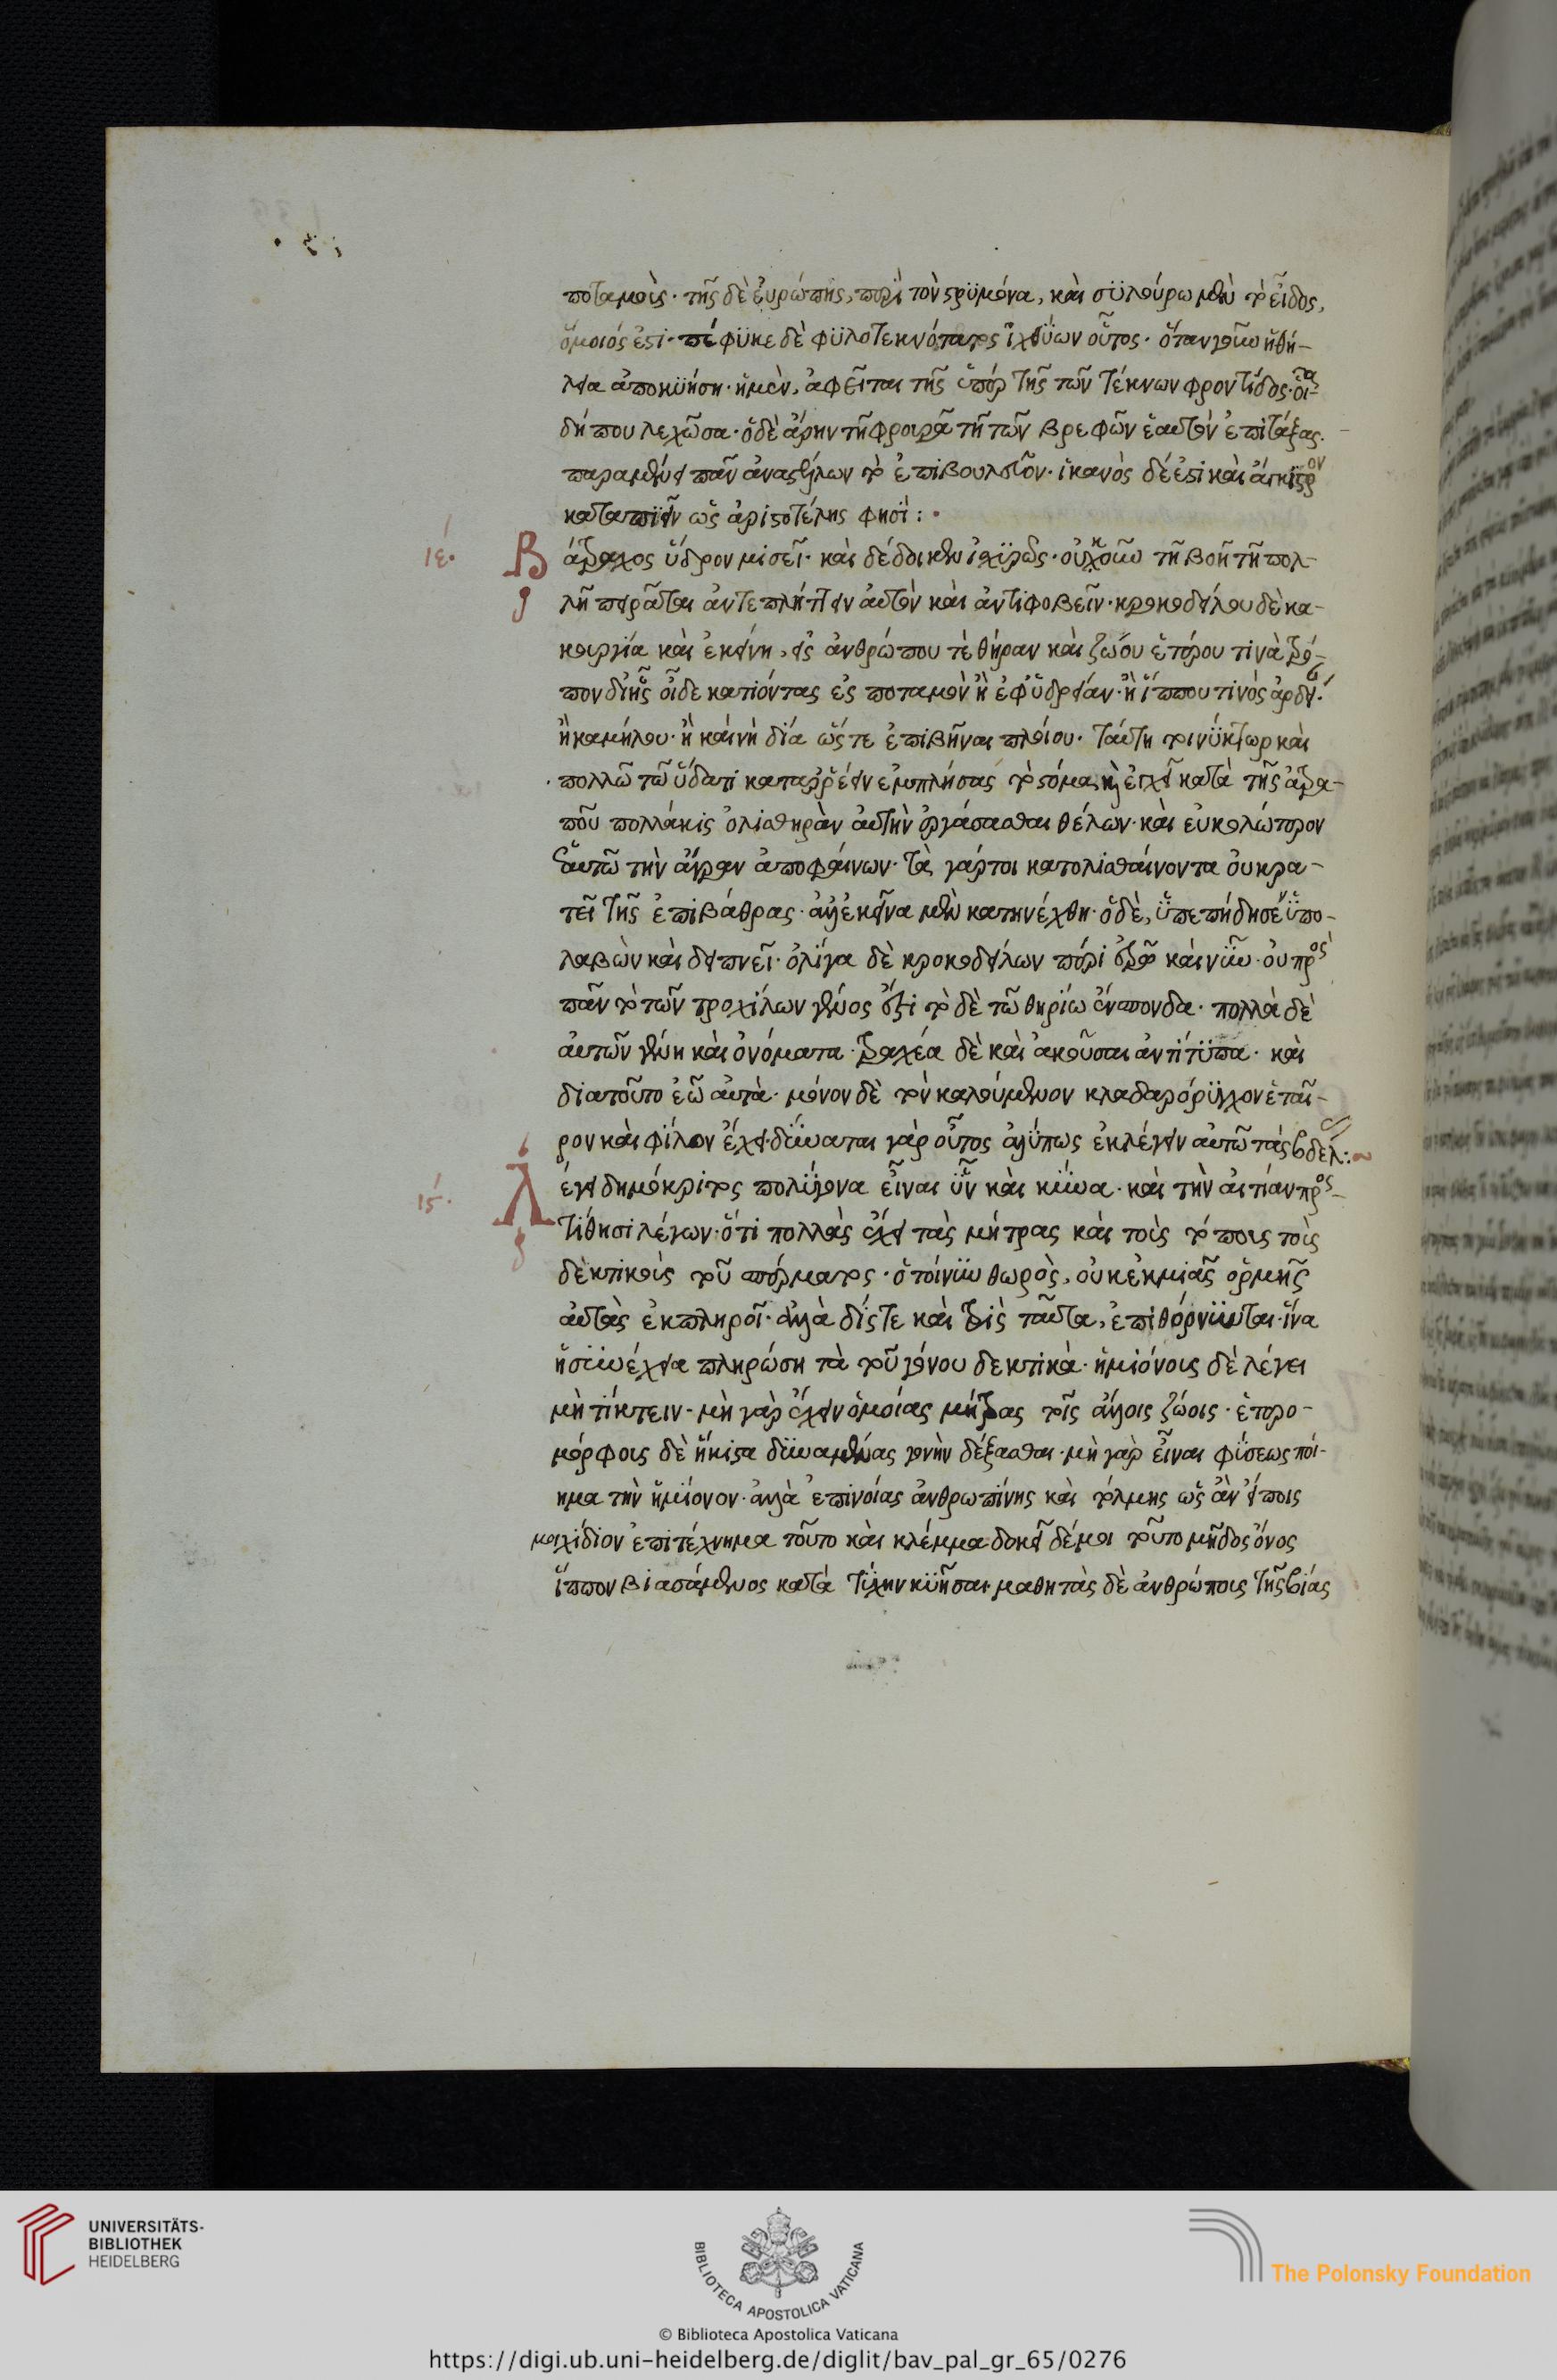 ποταμοῖς· τῆς δὲ ἐυρώπης, περὶ τὸν στρϋμόνα, καὶ σϋλούρω μὲν τὸ εἶδος,
ὅμοιός ἐστι· πέφϋκε δὲ φϋλοτεκνότατος ἰχθύων οὗτος· ὅταν γοῦν ἡ θή-
λεια ἀποκϋήση· ἡ μὲν, ἀφεῖται τῆς ὑπὲρ τῆς τῶν τέκνων φροντίδος·
δήπου λεχῶσα· ὁ δὲ ἄρην τῆ φρουρᾶ τῆ τῶν βρεφῶν ἑαυτὸν ἐπιτάξας·
παραμένει πᾶν ἀναστέλων τὸ ἐπιβουλεῦον· ἱκανὸς δέ ἐστι καὶ ἄγκιστρον
καταπιεῖν ὥς ἀριστοτέλης φησί:·
ιε· Βάτραχος ὕδρον μισεῖ· καὶ δέδοικεν ἰσχϋρῶς· οὐκοῦν τῆ βοῆ τῆ πολ-
λῆ πειρᾶται ἀντεπλήττειν αὐτὸν καὶ ἀντιφοβεῖν· κροκοδείλου δὲ κα-
κουργία καὶ ἐκείνη, εἰς ἀνθρώπου τὲ θήραν καὶ ζώου ἑτέρου τινὰ τρό-
πον δἰ ἧς οἶδε κατιόντας ἐς ποταμὸν ἢ ἐφ' ὑδρείαν· ἢ ἵππου τινὸς
ἢ καμήλου· ἢ καὶ νὴ δία ὥστε ἐπιβῆναι πλοίου· ταύτη τοι νύκτωρ καὶ
πολλῶ τῶ ὕδατι καταρρέειν ἐμπλήσας τὸ στόμα, καὶ ἐκχεῖ κατὰ τῆς ἀτρα-
ποῦ πολλάκις ὀλισθηρὰν αὐτὴν ἐργάσασθαι θέλων· καὶ εὐκολώτερον
ἑαυτῶ τὴν ἄγραν ἀποφαίνων· τὰ γάρ τοι κατολισθαίνοντα οὐ κρα-
τεῖ τῆς ἐπιβάθρας· ἀλλ' ἐκεῖνα μὲν κατηνέχθη· ὁ δὲ, ὑπεπήδησέ ὑπο-
λαβὼν καὶ δειπνεῖ· ὀλίγα δὲ κροκοδείλων πέρι ἐρῶ καὶ νῦν· οὐ πρὸς
πᾶν τὸ τῶν τροχίλων γένος ἔστι τὸ δὲ τῶ θηρίω ἔνσπονδα· πολλὰ δὲ
αὐτῶν γένη καὶ ὀνόματα· τραχέα δὲ καὶ ἀκοῦσαι ἀντίτϋπα· καὶ
διατοῦτο ἐῶ αὐτὰ· μόνον δὲ τὸν καλούμενον κλαδαρόρϋγχον ἑταῖ-
ρον καὶ φίλον ἔχει· δύναται γὰρ οὗτος ἀλύπως ἐκλέγειν αὐτῶ τὰς βδέλ:~
ιϛ· Λέγει δημόκριτος πολύγονα εἶναι ὗν καὶ κύνα· καὶ τὴν αἰτίαν προς-
τίθησι λέγων· ὅτι πολλὰς ἔχει τὰς μήτρας καὶ τοὺς τόπους τοὺς
δεκτικοὺς τοῦ σπέρματος· ὁ τοίνϋν θωρὸς, οὐκ ἐκ μιᾶς ὁρμῆς
αὐτὰς ἐκπληροῖ· ἀλλὰ δίς τε καὶ τρὶς ταῦτα, ἐπιθόρνϋνται· ἵνα
ἡ σϋνέχεια πληρώση τὰ τοῦ γόνου δεκτικά· ἡμιόνους δὲ λέγει
μὴ τίκτειν· μὴ γὰρ ἔχειν ὁμοίας μήτρας τοῖς ἄλλοις ζώοις· ἑτερο-
μόρφους δὲ ἥκιστα δϋναμένας γονὴν δέξασθαι· μὴ γὰρ εἶναι φύσεως ποί-
ημα τὴν ἡμίονον· ἀλλὰ ἐπινοίας ἀνθρωπίνης καὶ τόλμης ὡς ἂν εἴποις
μοιχίδιον ἐπιτέχνημα τοῦτο καὶ κλέμμα· δοκεῖ δέ μοι τοῦτο μῆδος ὄνος
ἵππον βιασάμενος κατὰ τύχην κϋῆσαι· μαθητὰς δὲ ἀνθρώπους τῆς βίας
UNIVERSITÄTS-
BIBLIOTHEK
HEIDELBERG
BIBLIOTECA APOSTOLICA VATICANA
The Polonsky Foundation
© Biblioteca Apostolica Vaticana
https://digi.ub.uni-heidelberg.de/diglit/bav_pal_gr_65/0276